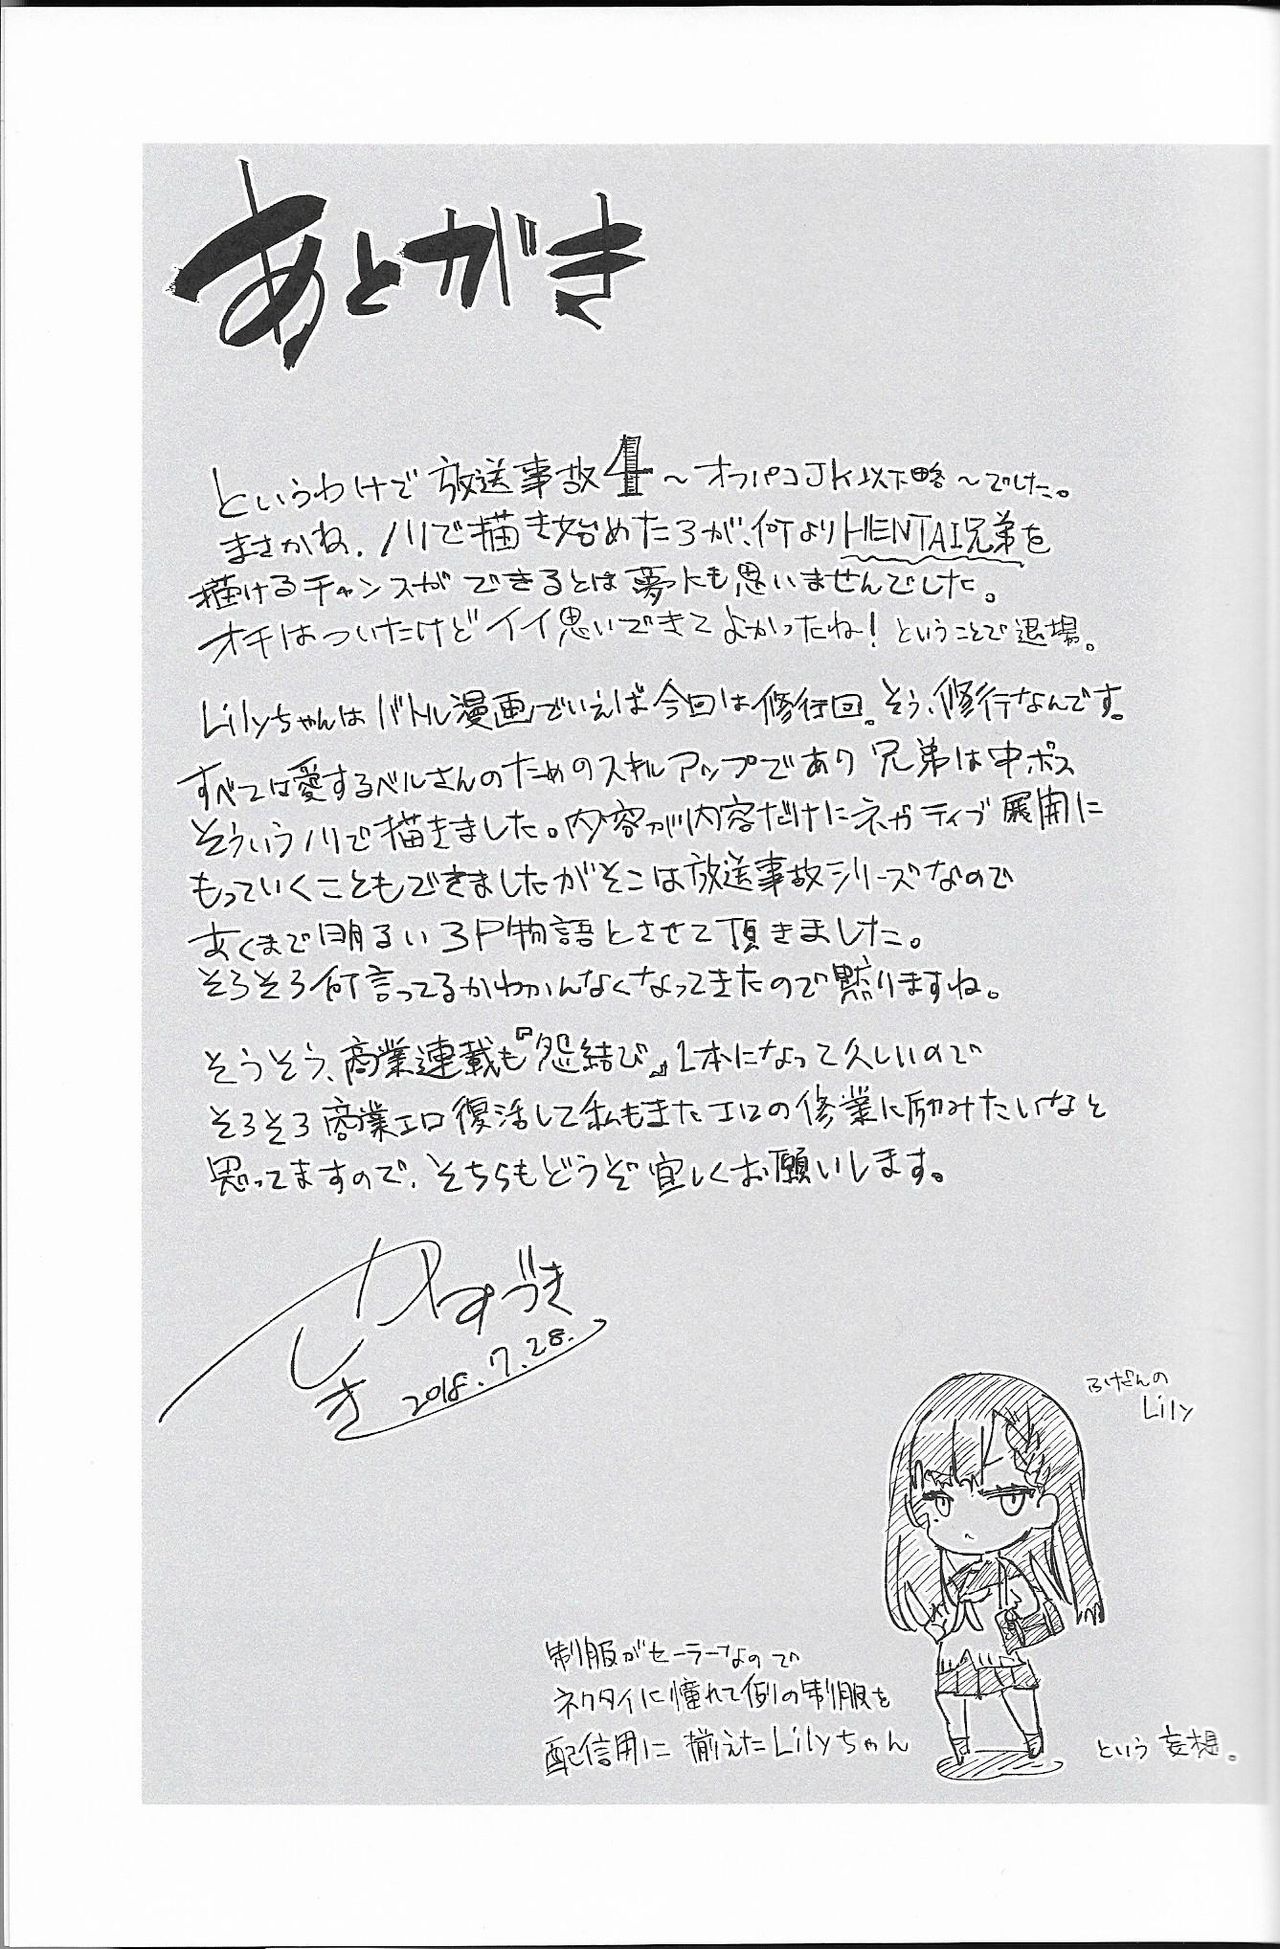 あとがき
というわけで放送事故4～オフパコJK以下略～でした。
まさかね、ノリで描き始めた3が、何よりHENTAI兄弟を
描けるチャンスができるとは夢にも思いませんでした。
オチはついたけどイイ思いできてよかったね!ということで退場。
Lilyちゃんはバトル漫画でいえば今回は修行回。そう、修行なんです。
すべては愛するベルさんのためのスキルアップであり兄弟は中ボス
そういうノリで描きました。内容が内容だけにネガティブ展開に
もっていくこともできましたがそこは放送事故シリーズなので
あくまで明るい3P物語とさせて頂きました。
そろそろ何言ってるかわかんなくなってきたので黙りますね。
そうそう、商業連載も『怨結び』1本になって久しいので
そろそろ商業エロ復活して私もまたエロの修業に励みたいなと
思ってますので、そちらもどうぞ宜しくお願いします。
かずづき
しき 2018.7.28.
ふだんの
Lily
制服がセーラーなので
ネクタイに憧れて例の制服を
配信用に揃えたLilyちゃん
という妄想。